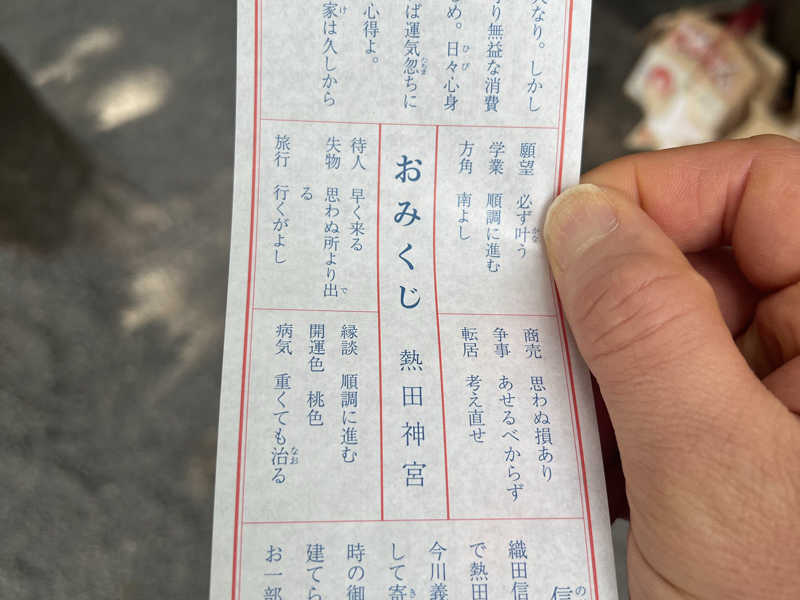 大なり。しかし
り無益な消費
め。日々心身
ば運気忽ちに
心得よ。
家は久しから
願望 必ず叶う
学業 順調に進む
方角 南よし
おみくじ 熱田神宮
待人 早く来る
失物 思わぬ所より出
る
旅行 行くがよし
商売 思わぬ損あり
争事 あせるべからず
転居 考え直せ
縁談 順調に進む
開運色 桃色
病気 重くても治る
信
織田信
で熱田
今川義
して寄
時の御
建てら
お一部